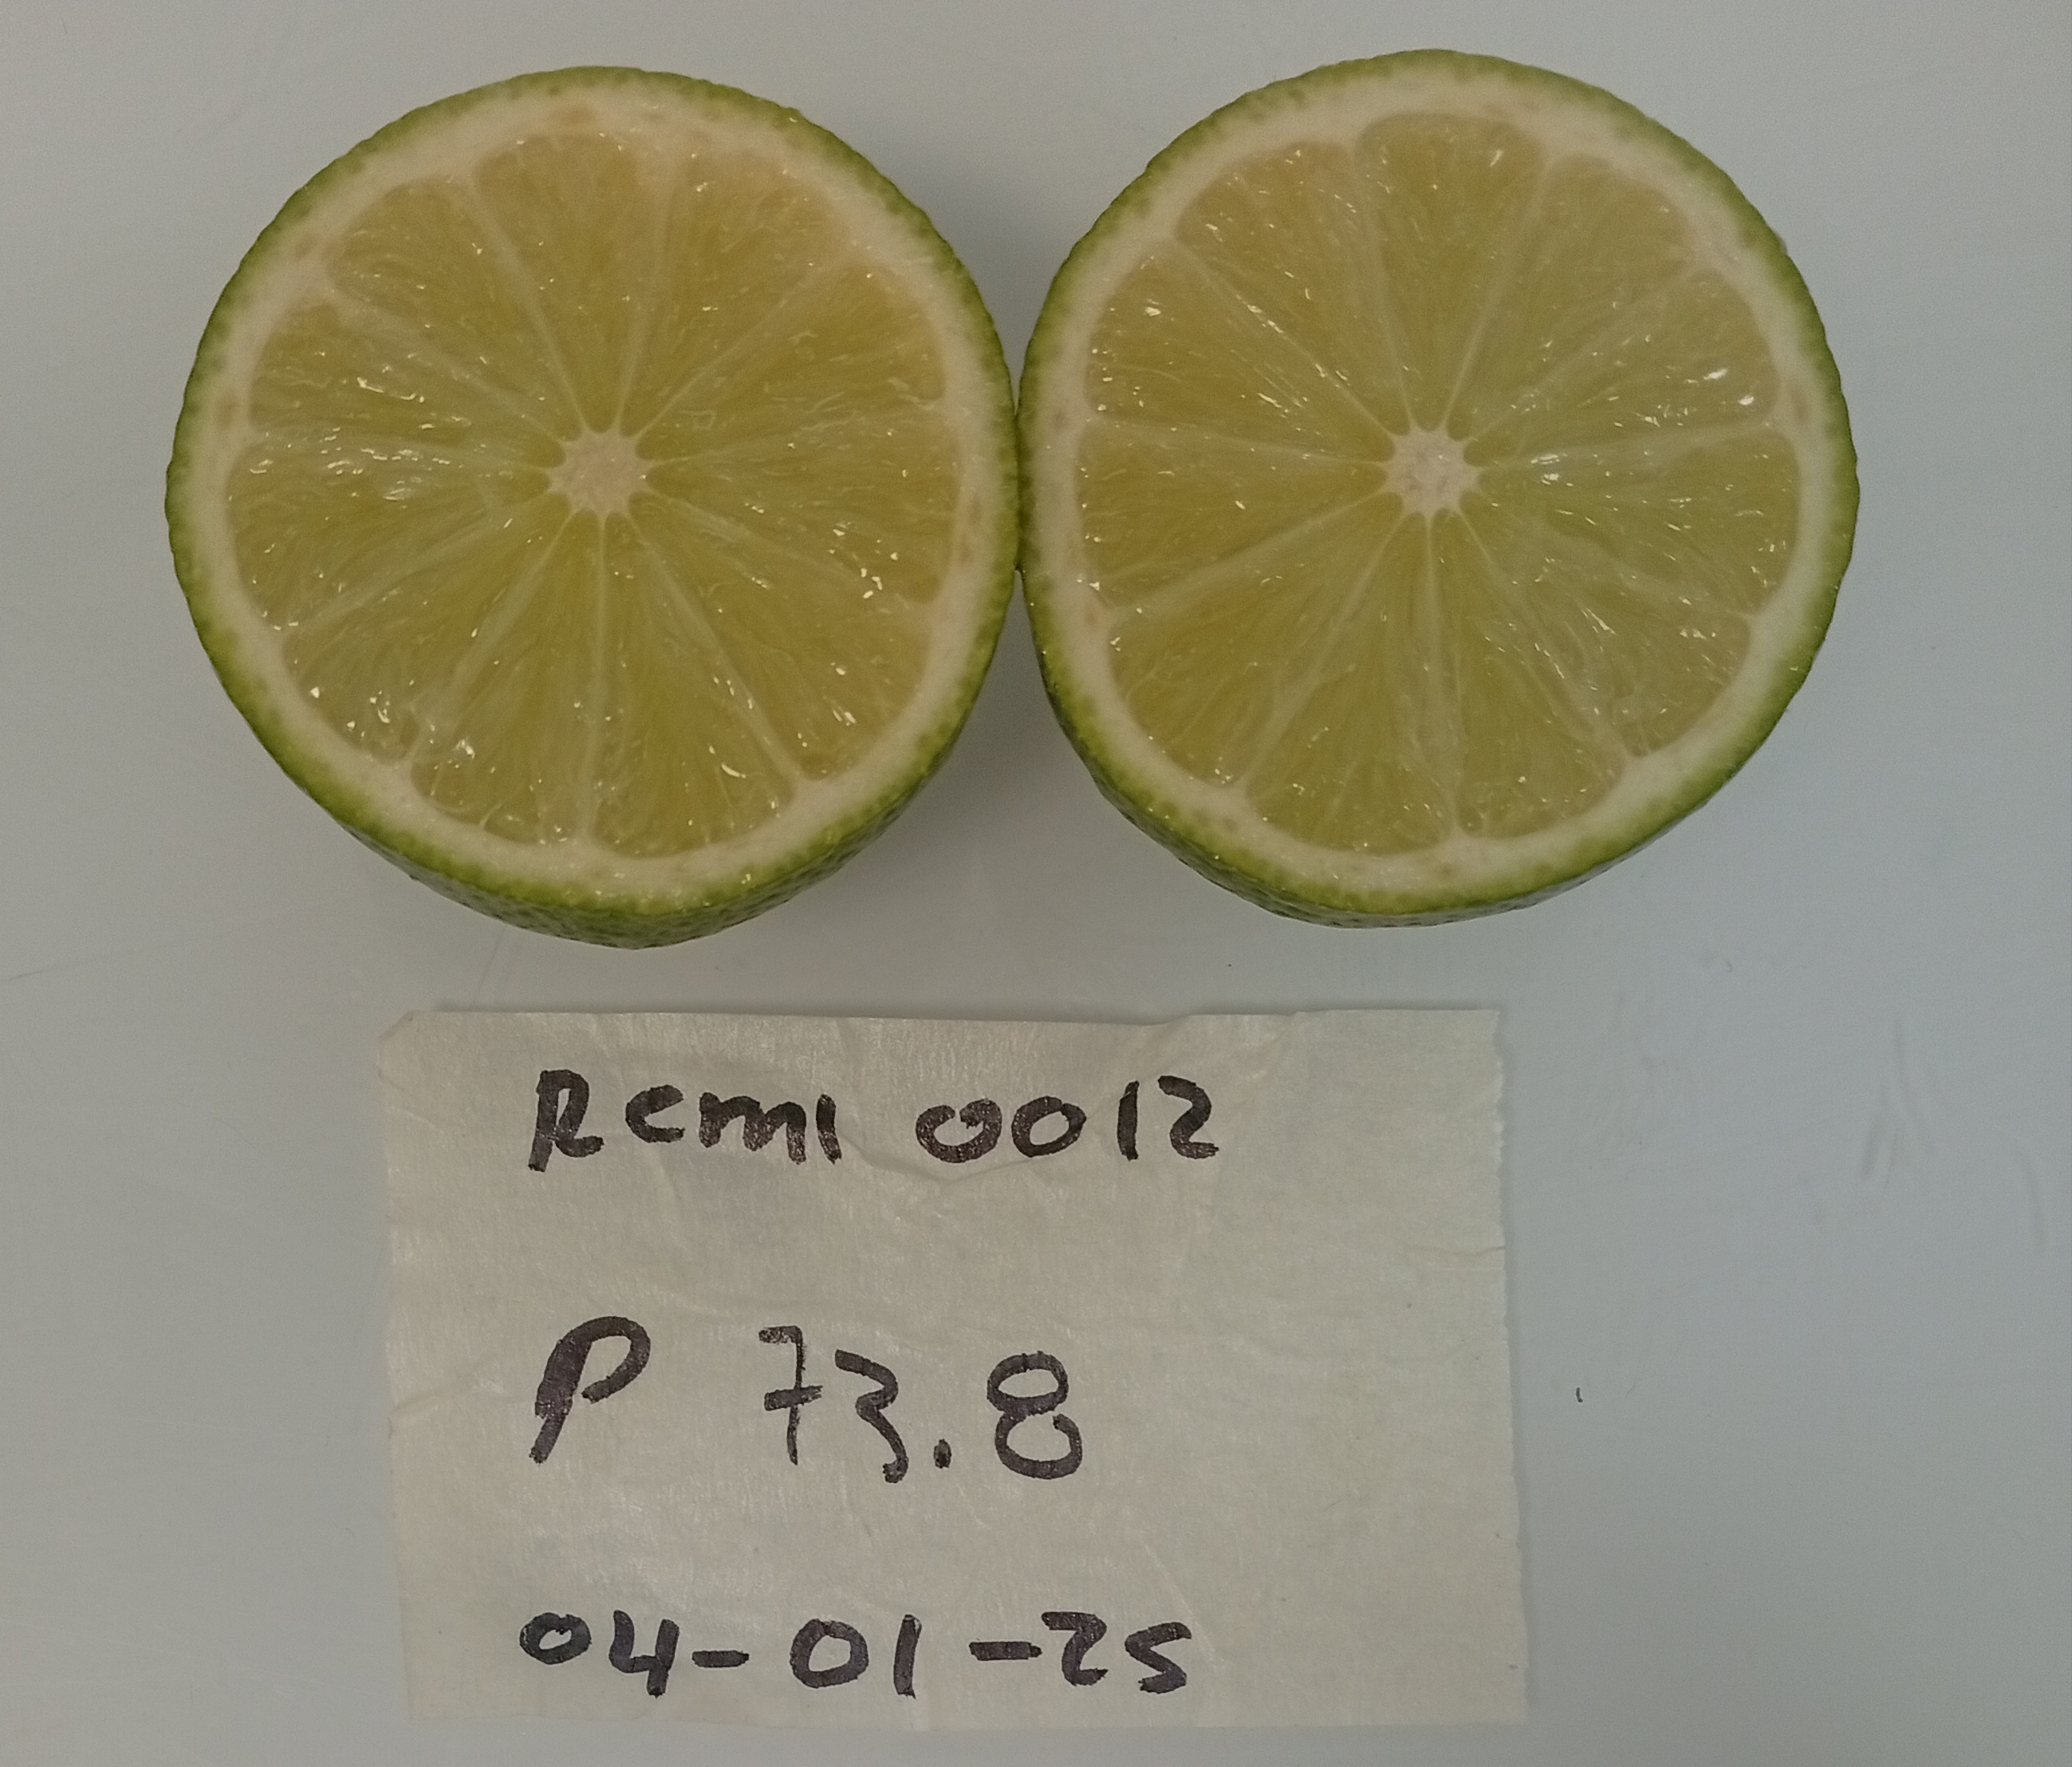 Remi 0012
P 73.8
04-01-25